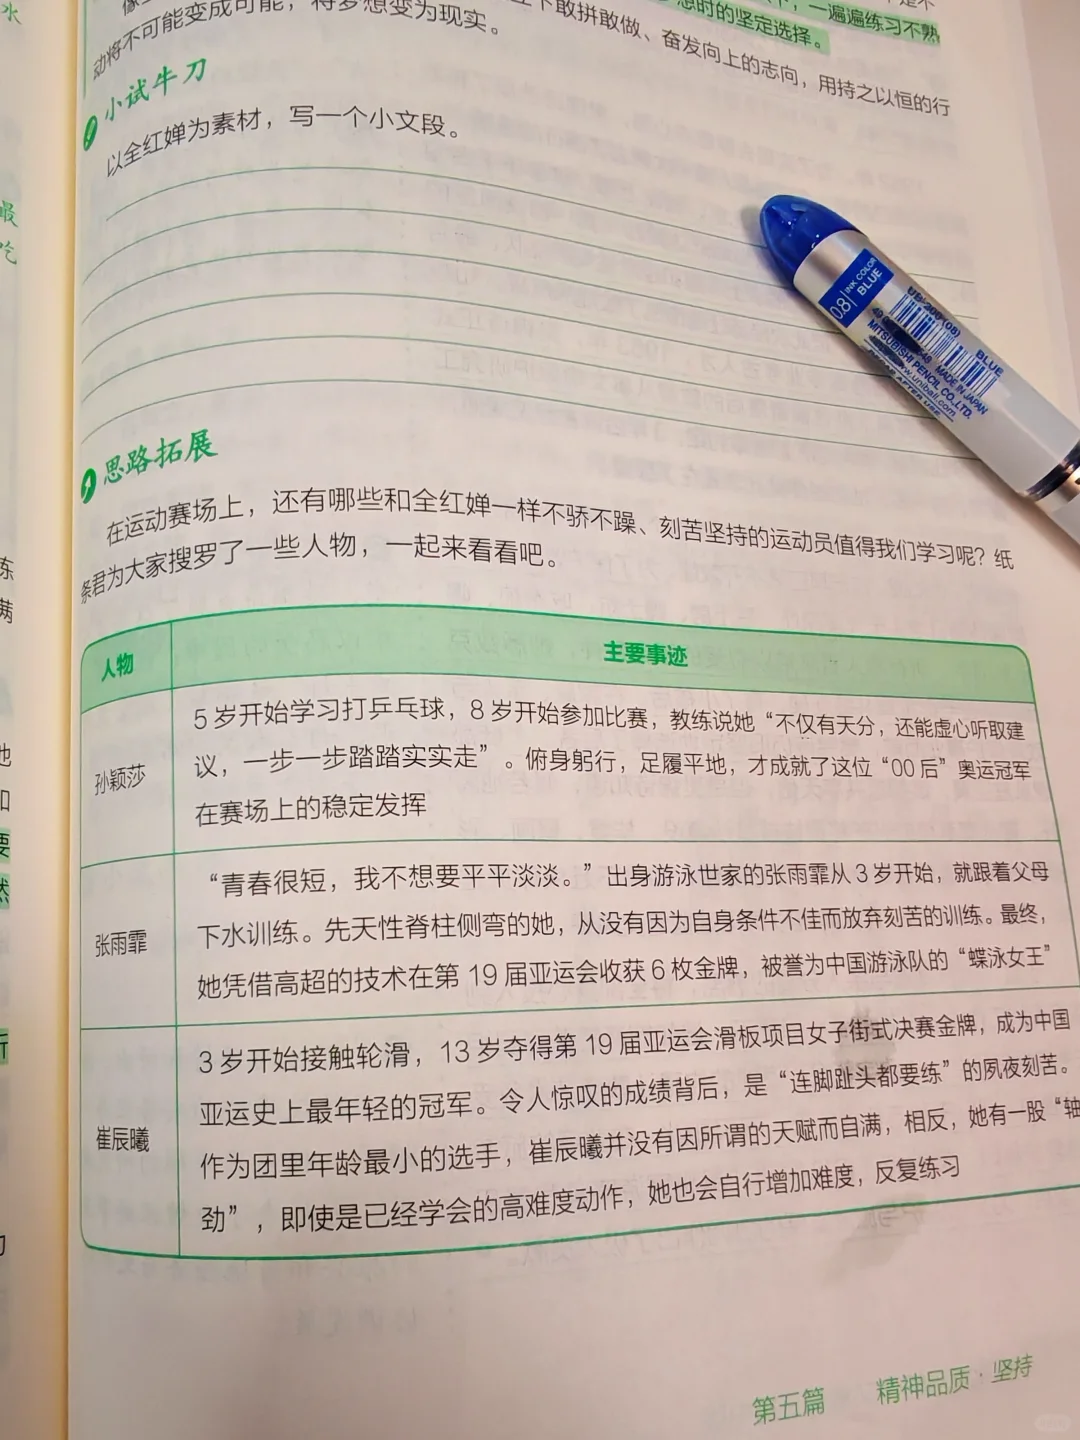 水
最
吃
东
满
他
和
要
然
所
一遍遍练习不熟
想时的坚定选择。
下敢拼敢做、奋发向上的志向，用持之以恒的行
动将不可能变成可能，将梦想变为现实。
小试牛刀
以全红婵为素材，写一个小文段。
0.8 INK COLOR BLUE
UB-200(08) BLUE
MADE IN JAPAN
MITSUBISHI PENCIL CO.,LTD.
www.uniball.com
思路拓展
在运动赛场上，还有哪些和全红婵一样不骄不躁、刻苦坚持的运动员值得我们学习呢？纸
条君为大家搜罗了一些人物，一起来看看吧。
人物 主要事迹
孙颖莎
5 岁开始学习打乒乓球，8 岁开始参加比赛，教练说她“不仅有天分，还能虚心听取建
议，一步一步踏踏实实走”。俯身躬行，足履平地，才成就了这位“00 后”奥运冠军
在赛场上的稳定发挥
张雨霏
“青春很短，我不想要平平淡淡。”出身游泳世家的张雨霏从 3 岁开始，就跟着父母
下水训练。先天性脊柱侧弯的她，从没有因为自身条件不佳而放弃刻苦的训练。最终，
她凭借高超的技术在第 19 届亚运会收获 6 枚金牌，被誉为中国游泳队的“蝶泳女王”
崔宸曦
3 岁开始接触轮滑，13 岁夺得第 19 届亚运会滑板项目女子街式决赛金牌，成为中国
亚运史上最年轻的冠军。令人惊叹的成绩背后，是“连脚趾头都要练”的夙夜刻苦。
作为团里年龄最小的选手，崔宸曦并没有因所谓的天赋而自满，相反，她有一股“轴
劲”，即使是已经学会的高难度动作，她也会自行增加难度，反复练习
第五篇 精神品质·坚持